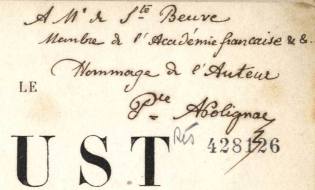 A Mr de Ste Beuve
Membre de l'Académie française & &.
Hommage de l'Auteur
LE
Pce A. Polignac
Rés 428126
UST